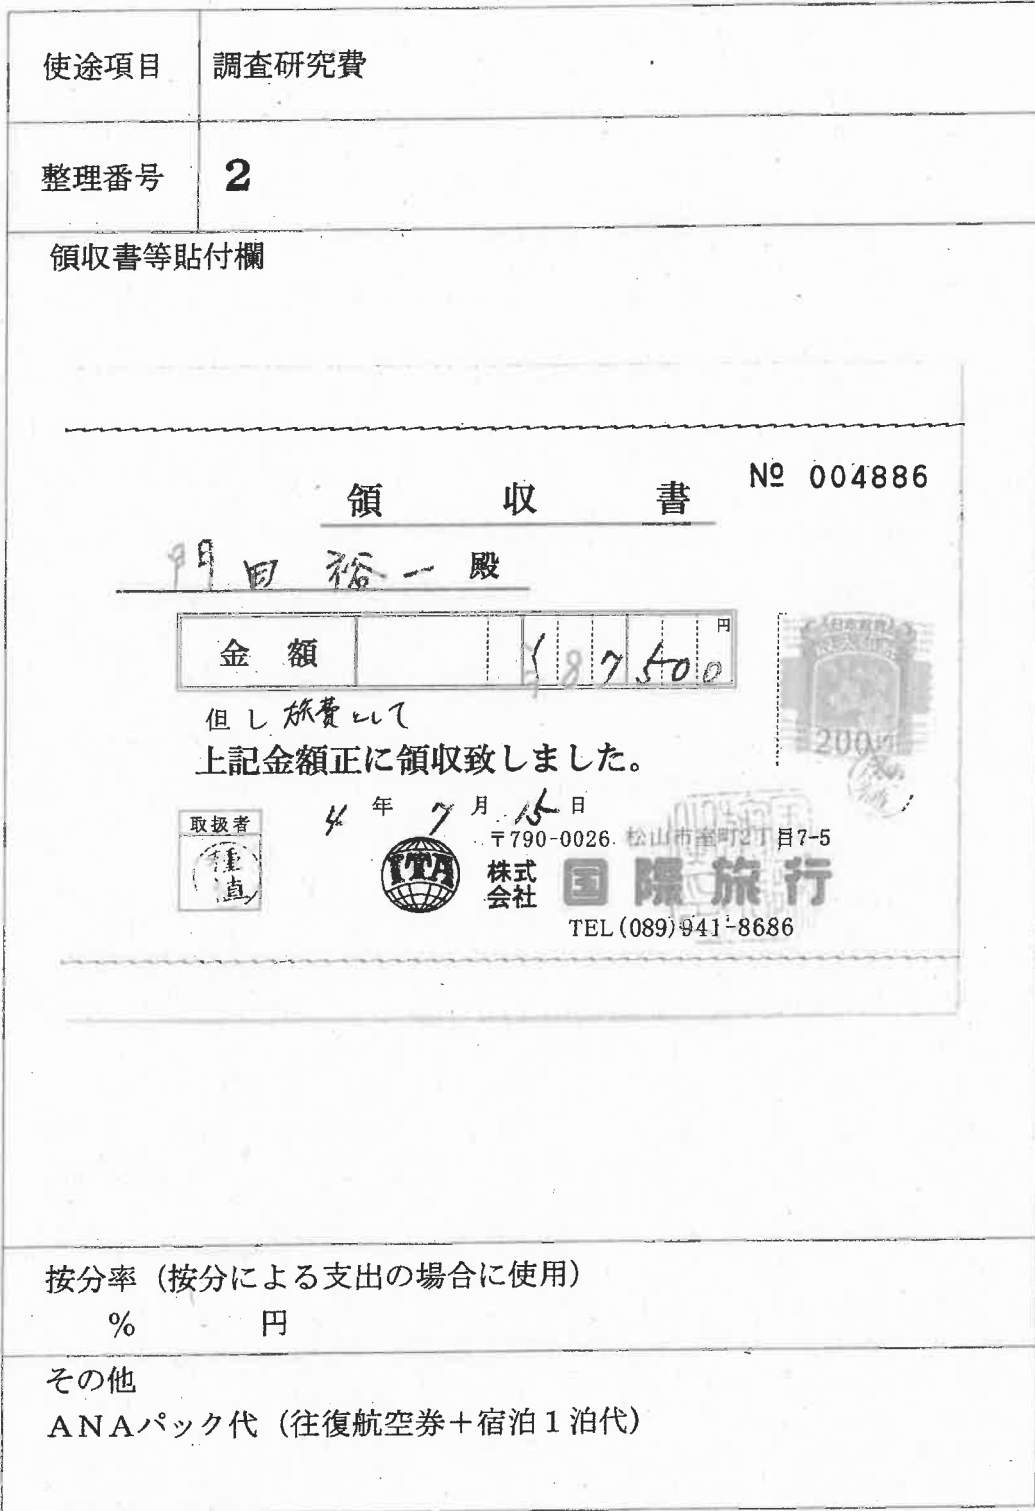 使途項目 調査研究費
整理番号 2
領収書等貼付欄
領収書 № 004886
門田 裕一 殿
金額 87500 円
但し 旅費として
上記金額正に領収致しました。
4年 7月 15日
取扱者
〒790-0026 松山市室町2丁目7-5
ITA 株式会社 国際旅行
TEL(089)941-8686
日本政府
200円
按分率（按分による支出の場合に使用）
％ 円
その他
ＡＮＡパック代（往復航空券＋宿泊１泊代）